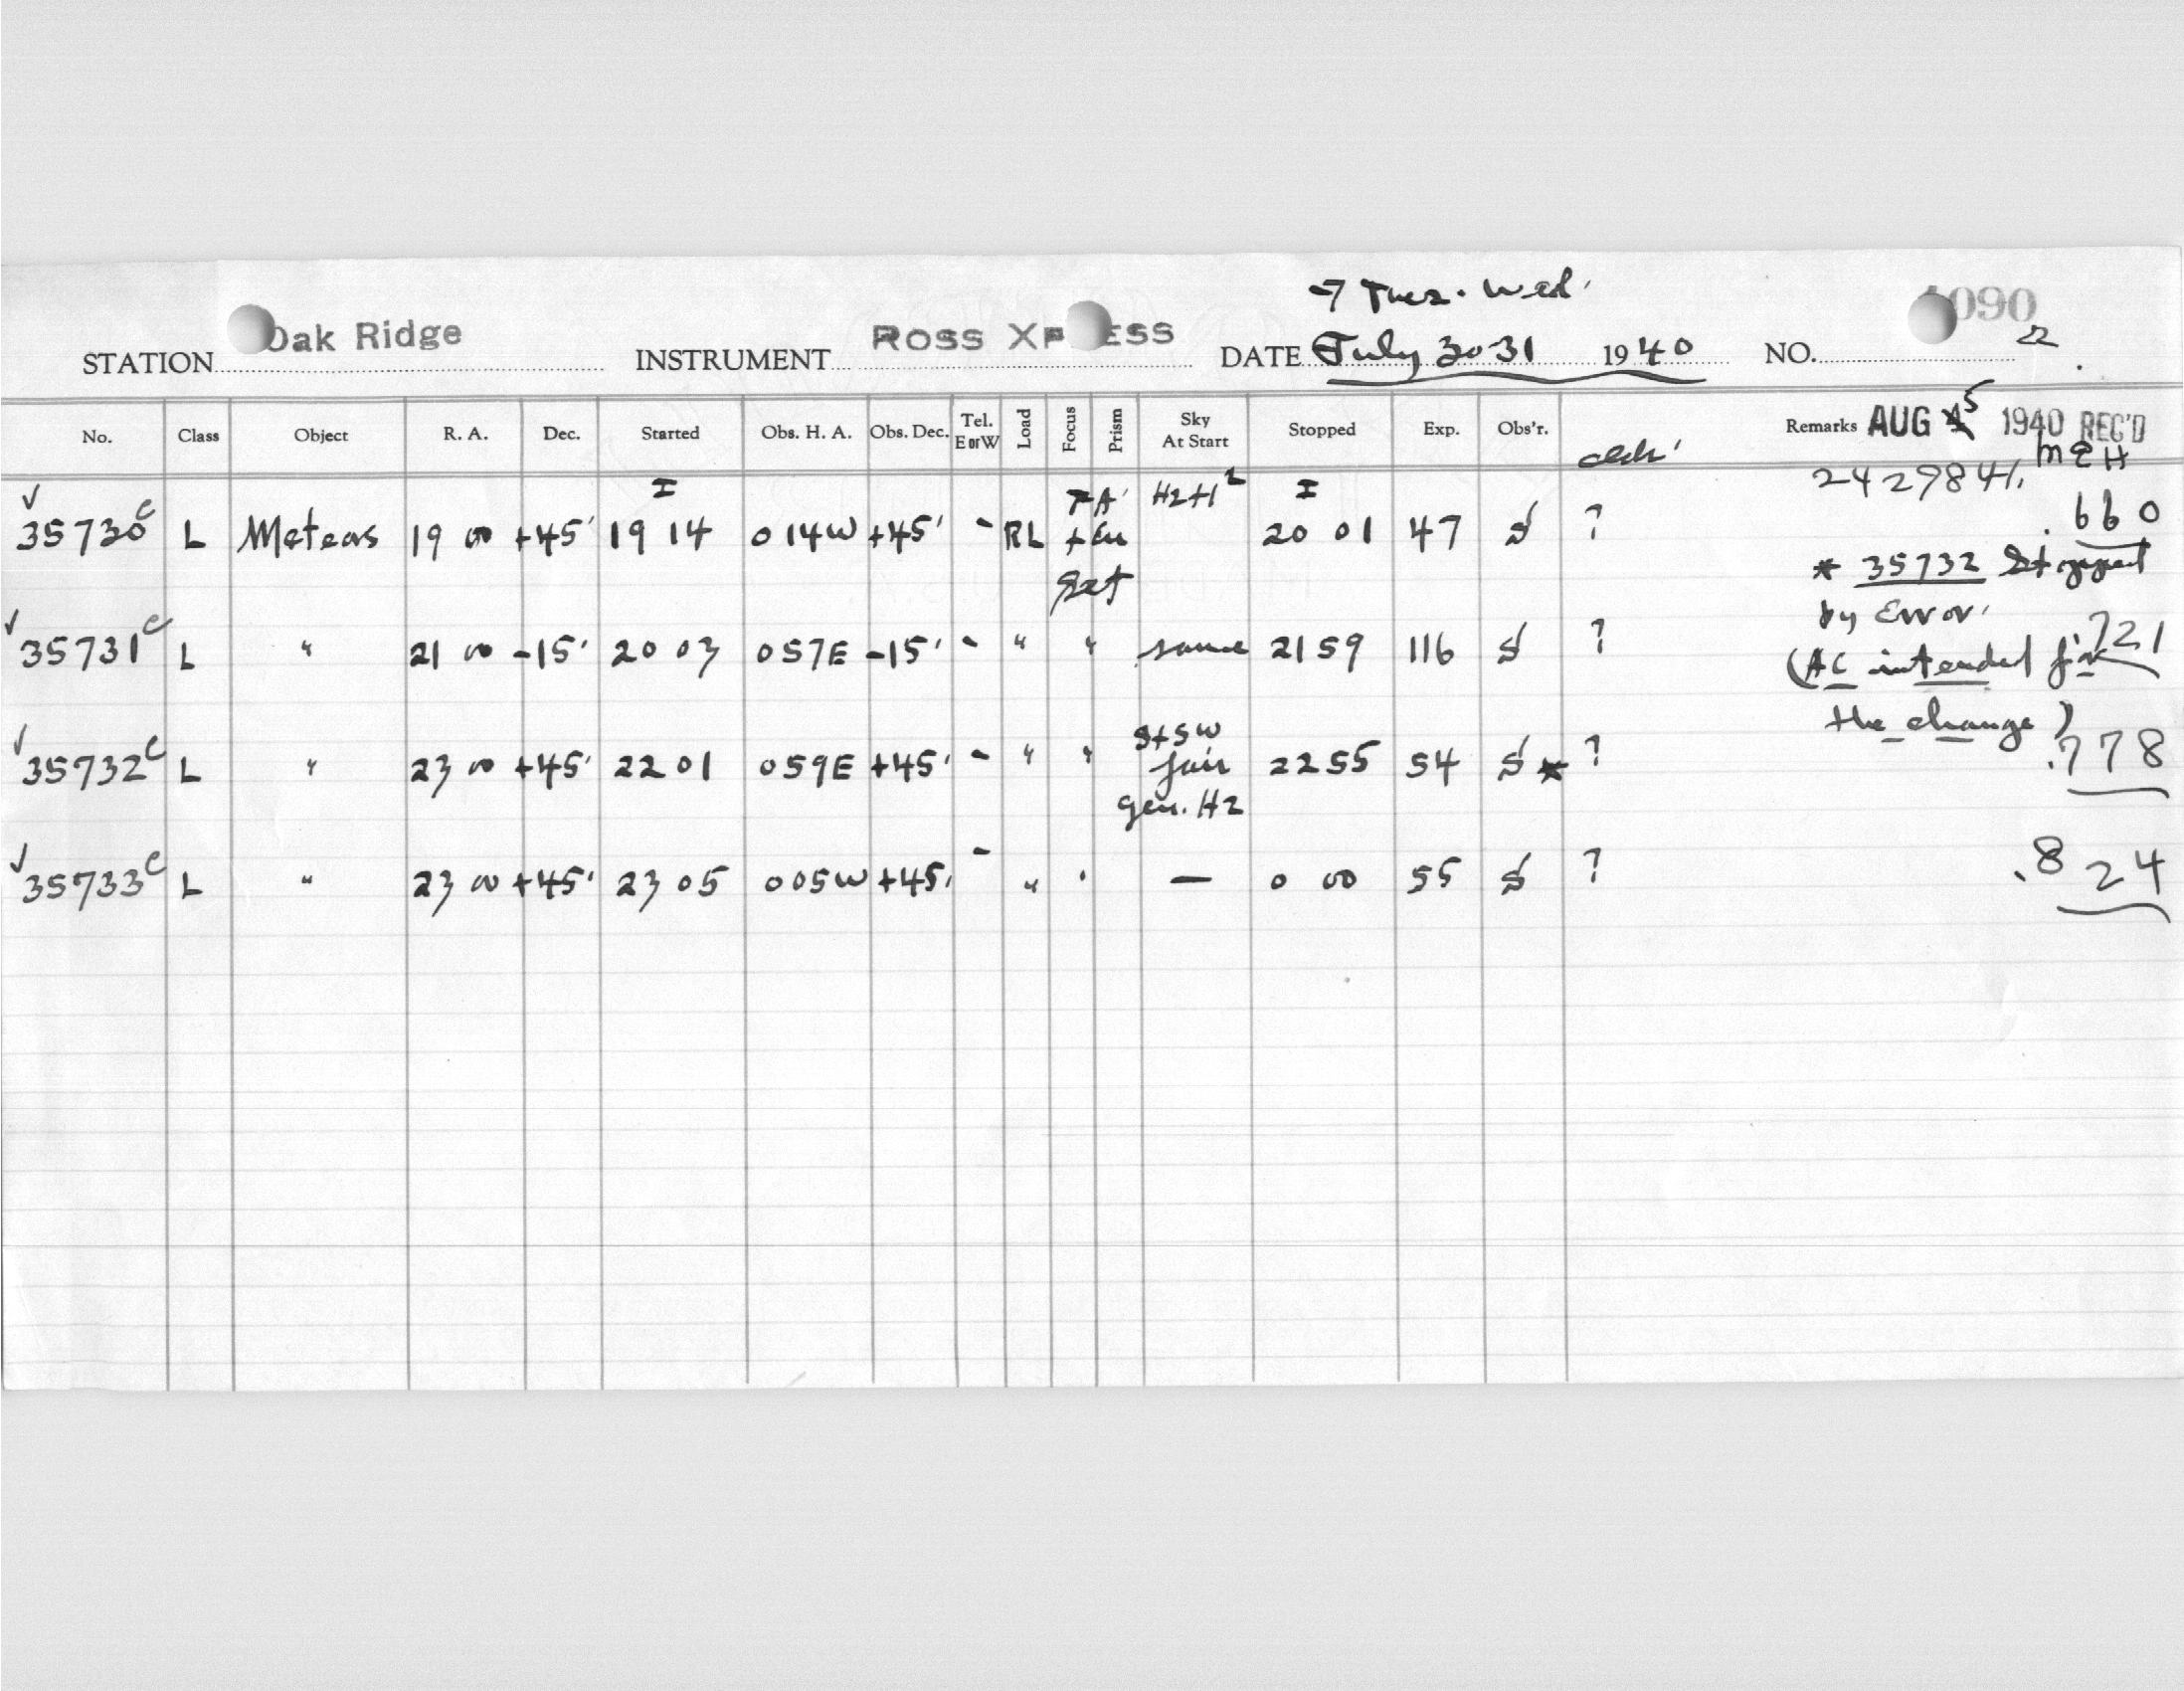 → Tues. Wed.
STATION Oak Ridge INSTRUMENT ROSS XPRESS DATE July 30 31 1940 NO. 090 22
No. Class Object R. A. Dec. Started Obs. H. A. Obs. Dec. Tel. E or W Load Focus Prism Sky At Start Stopped Exp. Obs'r. Remarks AUG 5 1940 REC'D
MEH
2429841.
I 7A' H2H² I
35730 c L Meteors 19 00 +45' 19 14 0 14W +45' - RL 20 01 47 S ? .660
Set
* 35732 Stopped
by Error.
35731 c L " 21 00 -15' 20 03 057E -15' - " " same 21 59 116 S ? .721
(AC intended for
the change)
S+SW
35732 c L " 23 00 +45' 22 01 059E +45' - " " fair 22 55 54 S * ? .778
gen. H2
35733 c L " 23 00 +45' 23 05 005W +45' - " " — 0 00 55 S ? .824